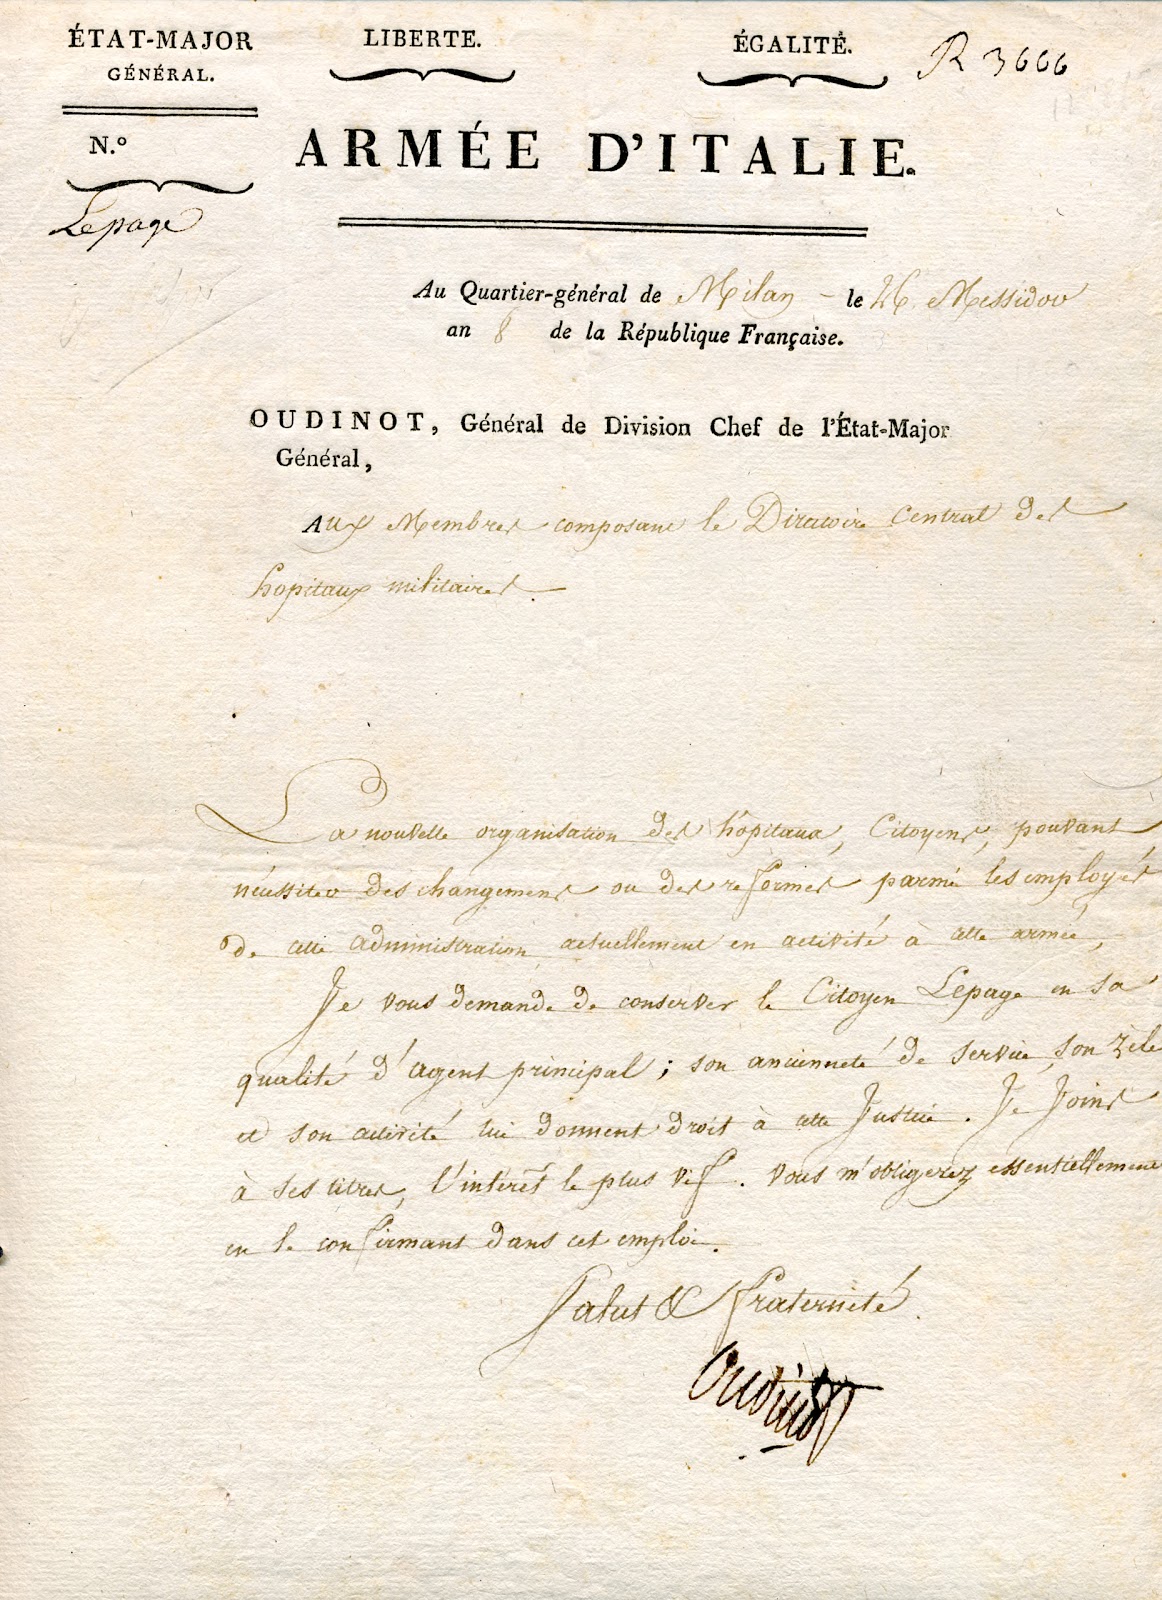 ÉTAT-MAJOR
GÉNÉRAL.
LIBERTE.
ÉGALITÉ.
R 3666
N.o
Lepage
ARMÉE D'ITALIE.
Au Quartier-général de Milan - le 26 Messidor
an 8 de la République Française.
OUDINOT, Général de Division Chef de l'État-Major
Général,
Aux Membres composant le Directoire Central des
hopitaux militaires.
La nouvelle organisation des hôpitaux, Citoyens, pouvant
nécessiter des changemens ou des reformes parmi les employés
de cette administration actuellement en activité à cette armée,
Je vous demande de conserver le Citoyen Lepage en sa
qualité d'agent principal; son ancienneté de service, son zèle
et son activité lui donnent droit à cette Justice. Je Joins
à ses titres, l'intérêt le plus vif. Vous m'obligerez essentiellement
en le confirmant dans cet emploi.
Salut & fraternité.
Oudinot